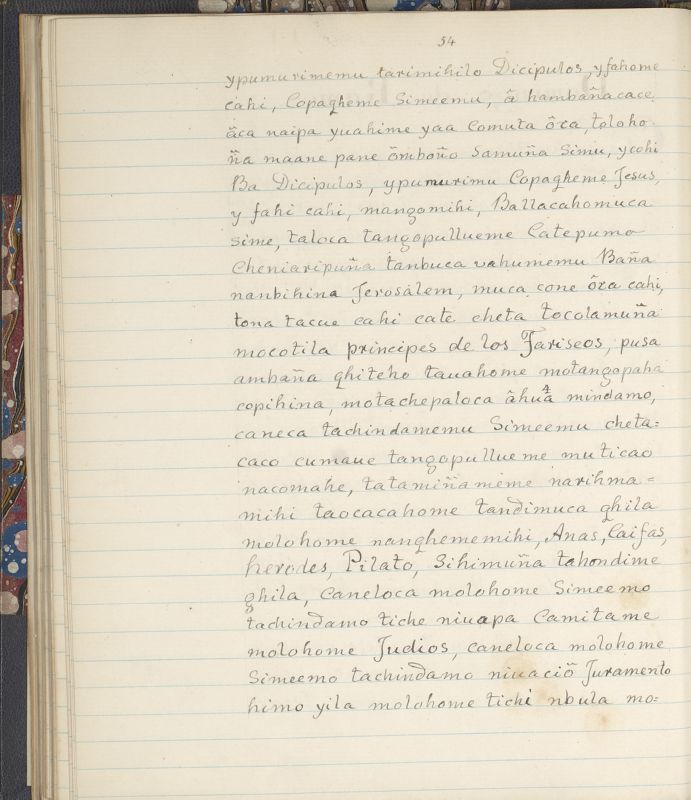 54
ypumurimemu tarimihilo Dicipulos, yfahome
cahi, Copagheme Simeemu, â hambaña cace
âca naipa yuahime yaa comuta ôca, toloho
ña maane pane ômboño samuña Simu, ycohi
Ba Dicipulos, ypumurimu Copagheme Jesus,
y fahi cahi, mangomihi, Ballacahomuca
sime, taloca tangopullueme Catepumo
cheniaripuña tanbuca vahumemu Baña
nanbihina Jerosalem, muca cone ôca cahi,
tona tacue cahi cate cheta tocolamuña
mocotila principes de los Fariseos, pusa
ambaña ghiteho tauahome motangopaha
copihina, motachepaloca âhua mindamo,
caneca tachindamemu Simeemu cheta=
caco cumaue tangopullueme muticao
nacomahe, tatamiñameme narihma=
mihi taocacahome tandimuca ghila
molohome nanghememihi, Anas, Caifas,
herodes, Pilato, Sihimuña tahondime
ghila, caneloca molohome Simeemo
tachindamo tiche niuapa Camitame
molohome Judios, caneloca molohome
Simeemo tachindamo niuaciõ Juramento
himo yila molohome tichi nbula mo=